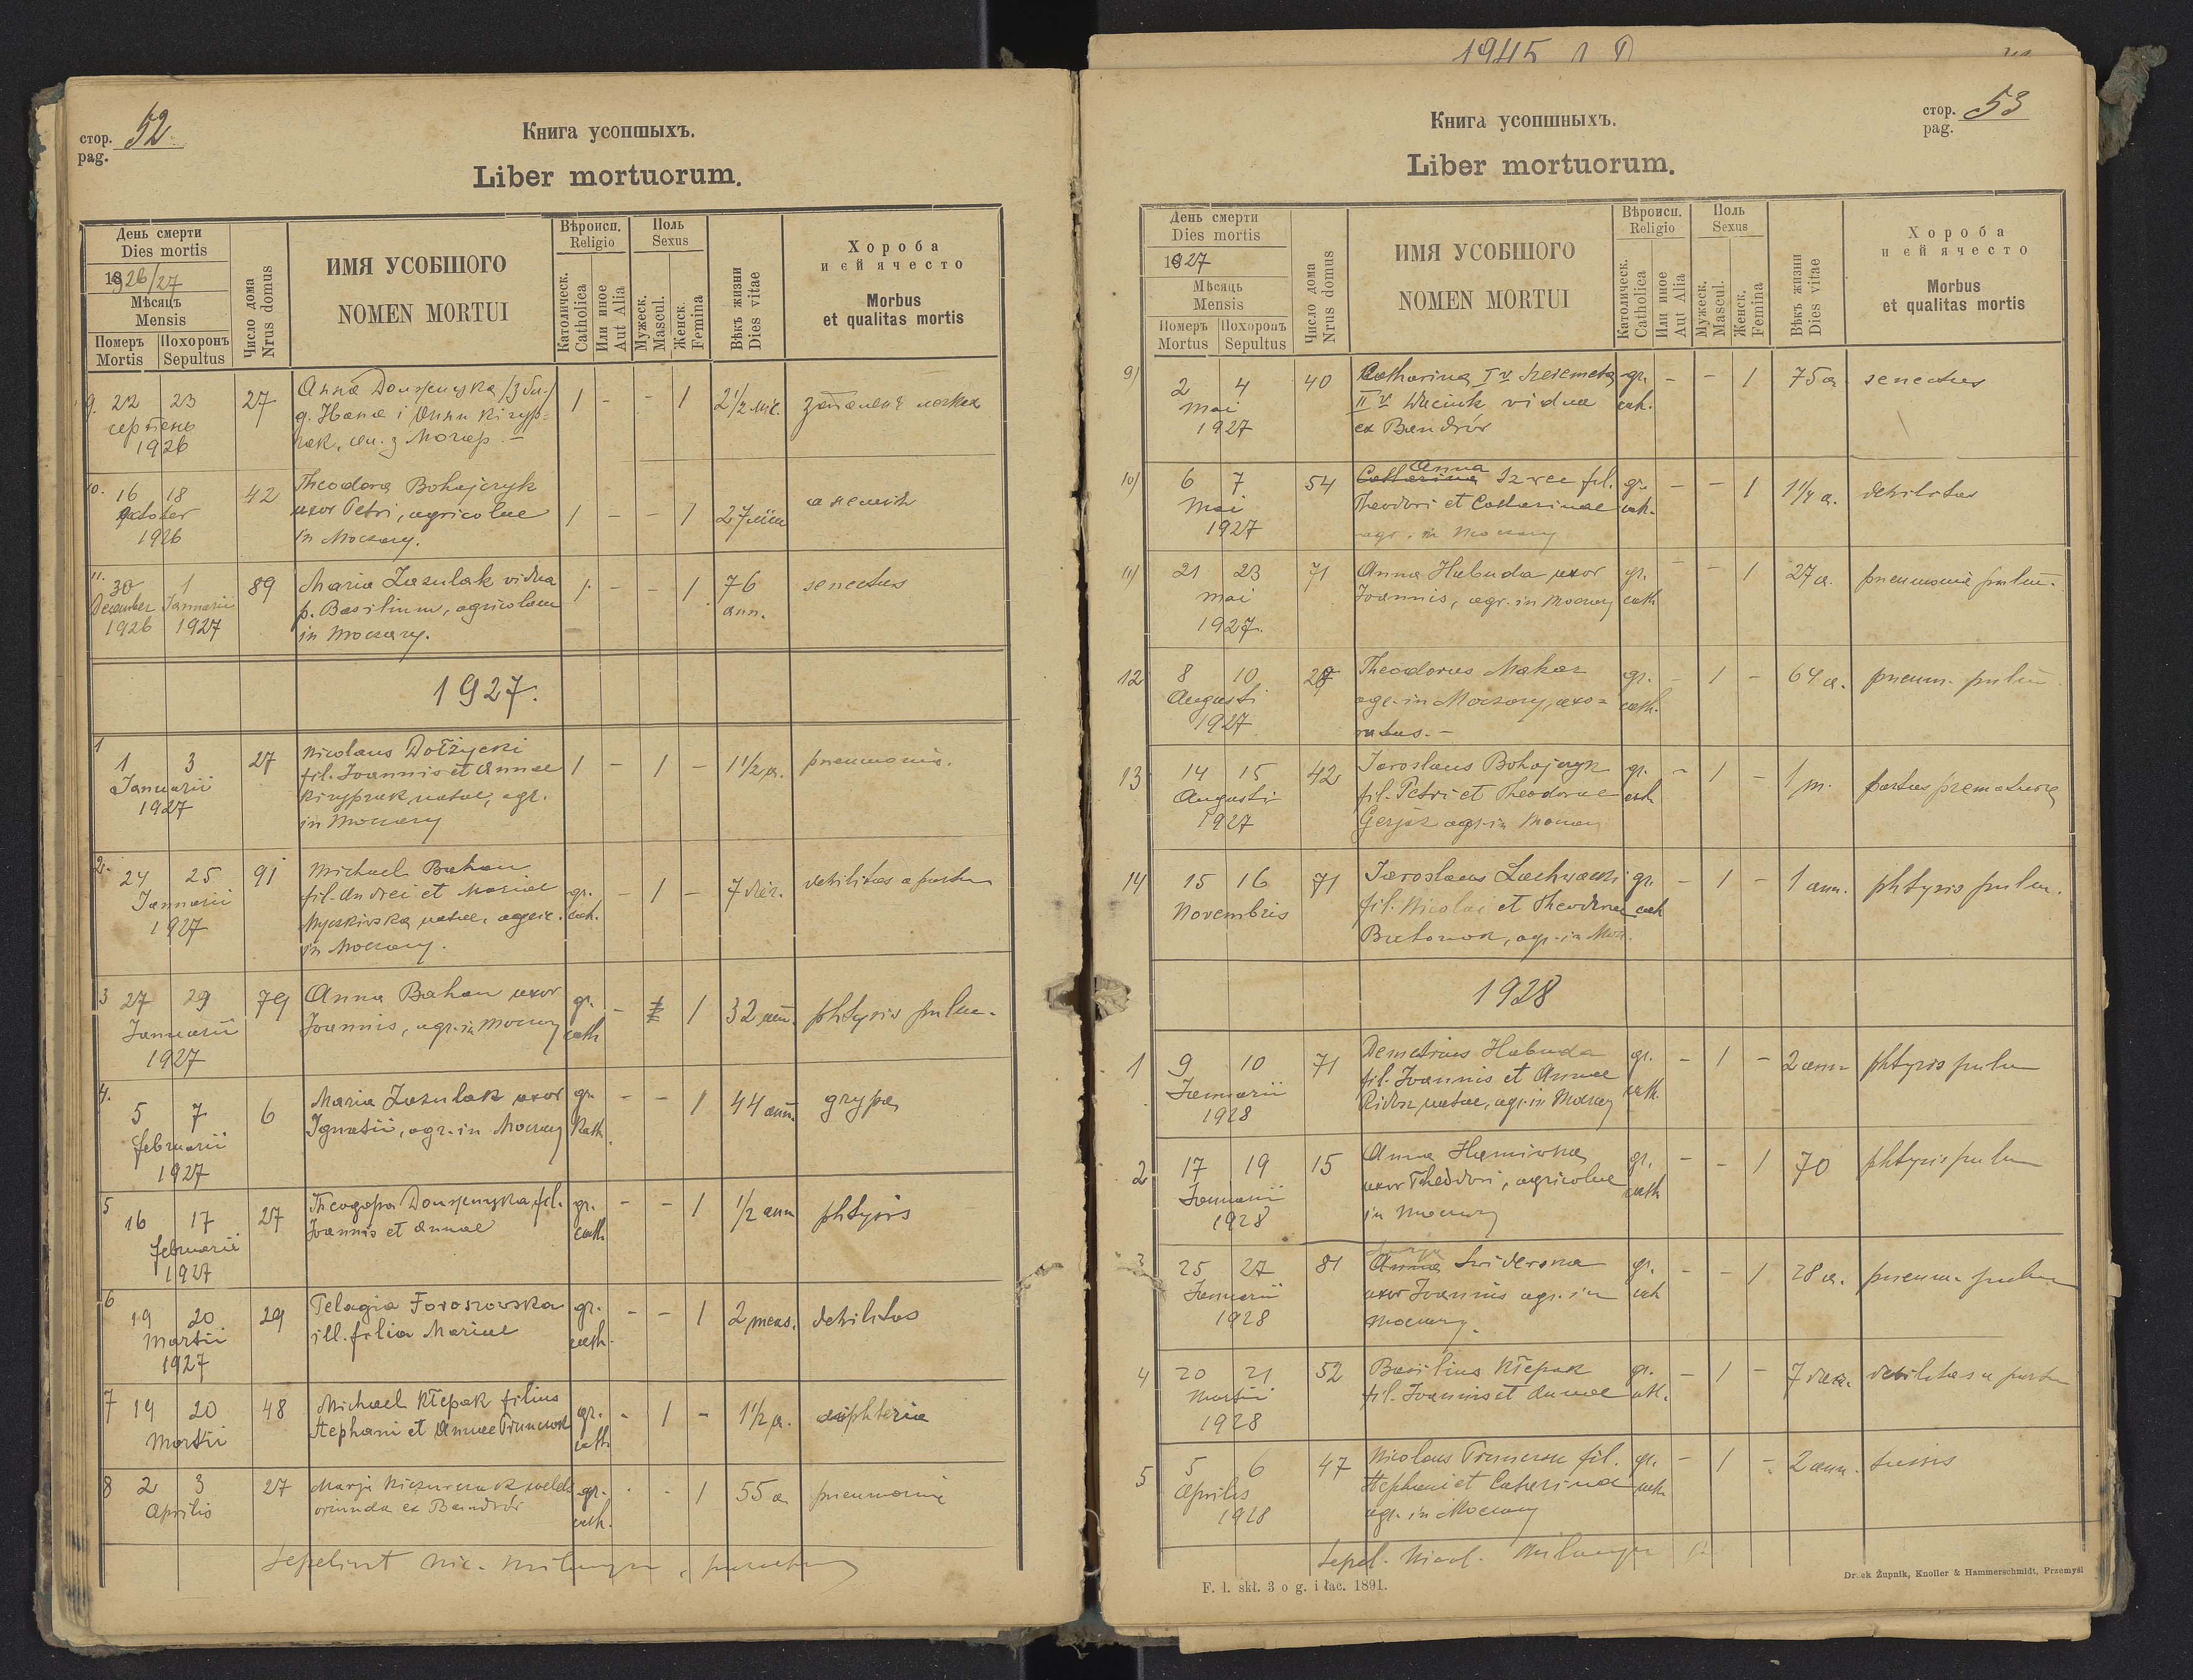 1945
стор. 52.
pag.
Книга усопшыхъ.
Liber mortuorum.
День смерти
Dies mortis
1926/27
Мѣсяць
Mensis
Померъ Похоронъ
Mortis Sepultus
Число дома
Nrus domus
ИМЯ УСОБШОГО
NOMEN MORTUI
Вѣроисп.
Religio
Католическ.
Catholica
Или иное
Aut Alia
Поль
Sexus
Мужеск.
Mascul.
Женск.
Femina
Вѣкъ жизни
Dies vitae
Хороба
и ей ячесто
Morbus
et qualitas mortis
9. 22 23 27 Анна 1 - - 1 2½ міс.
серпень д. Івана і Анни
1926
10. 16 18 42 Theodora Bohajczyk
October uxor Petri, agricolae 1 - - 1 27
1926 in Moczary.
11. 30 1 89 Maria Zazulak vidua 1 - - 1 76 senectus
December Januarii p. Basilium, agricolam ann.
1926 1927 in Moczary.
1927.
1 1 3 27 Nicolaus Dołżycki
Januarii fil. Joannis et Annae 1 - 1 - 1½ a. pneumonia.
1927 natae, agr.
in Moczary
2. 24 25 91 Michael Bahan
Januarii fil. Andrei et Mariae gr. - 1 - 7 dier. debilitas a partu
1927 natae, agric. cath.
in Moczary.
3 27 29 79 Anna Bahan uxor gr. - 1 32 ann. phtysis pulm.
Januarii Joannis, agr. in Moczary cath
1927
4. 5 7 6 Maria Zazulak uxor gr. - - 1 44 ann. grypa
februarii Ignatii, agr. in Moczary kath.
1927
5 16 17 27 fil. gr. - - 1 ½ ann phtysis
februarii Joannis et Annae cath
1927
6 19 20 29 Pelagia Foroszowska gr. - - 1 2 mens. debilitas
Martii ill. filia Mariae cath.
1927
7 19 20 48 Michael Klepak filius gr. - 1 - 1½ a. diphteria
Martii Stephani et Annae cath
8 2 3 27 Marja gr. - - 1 55 a. pneumonia
Aprilis oriunda ex Bandrów cath.
Sepelivit Nic.
стор. 53
pag.
Книга усопшныхъ.
Liber mortuorum.
День смерти
Dies mortis
1927
Мѣсяць
Mensis
Померъ Похоронъ
Mortus Sepultus
Число дома
Nrus domus
ИМЯ УСОБШОГО
NOMEN MORTUI
Вѣроисп.
Religio
Католическ.
Catholica
Или иное
Aut Alia
Поль
Sexus
Мужеск.
Mascul.
Женск.
Femina
Вѣкъ жизни
Dies vitae
Хороба
и ей ячесто
Morbus
et qualitas mortis
9) 2 4 40 Catharina I v. Szeremeta gr. - - 1 75 a senectus
Mai II v. vidua cath.
1927 ex Bandrów
10) 6 7 54 Catharina Anna fil. gr. - - 1 1¼ a. debilitas
Mai Theodori et Catharinae cath.
1927 agr. in Moczary
11) 21 23 71 Anna Habuda uxor gr. - - 1 27 a. pneumonia pulm.
Mai Joannis, agr. in Moczary cath
1927.
12 8 10 Theodorus Makar gr. - 1 - 64 a. pneum. pulm
Augusti agr. in Moczary, uxo= cath.
1927 ratus. -
13 14 15 42 Jaroslaus Bohajczyk gr. - 1 - 1 m. partus prematura
Augusti fil. Petri et Theodorae cath
1927 agr. in Moczary
14 15 16 71 Jaroslaus gr. - 1 - 1 ann. phtysis pulm.
Novembris fil. Nicolai et Theodorae cath
agr. in Mocz.
1928
1 9 10 71 Demetrius Habuda gr. - 1 - 2 ann phtysis pulm
Januarii fil. Joannis et Annae cath.
1928 natae, agr. in Moczary
2 17 19 15 Anna gr. - - 1 70 phtysis pulm
Januarii uxor Theodori, agricolae cath
1928 in Moczary
3 25 27 81 Anna gr. - - 1 28 a. pneum. pulm
Januarii uxor Joannis agr. in cath
1928 Moczary.
4 20 21 52 Basilius Klepak gr. - 1 - 7 dier. debilitas a partu
Martii fil. Joannis et Annae cath.
1928
5 5 6 47 Nicolaus fil. gr. - 1 - 2 ann. tussis
Aprilis Stephani et Catharina cath
1928 agr. in Moczary
Sepel. Nicol.
F. l. skł. 3 o g. i łac. 1891.
Druk Żupnik, Knoller & Hammerschmidt, Przemyśl